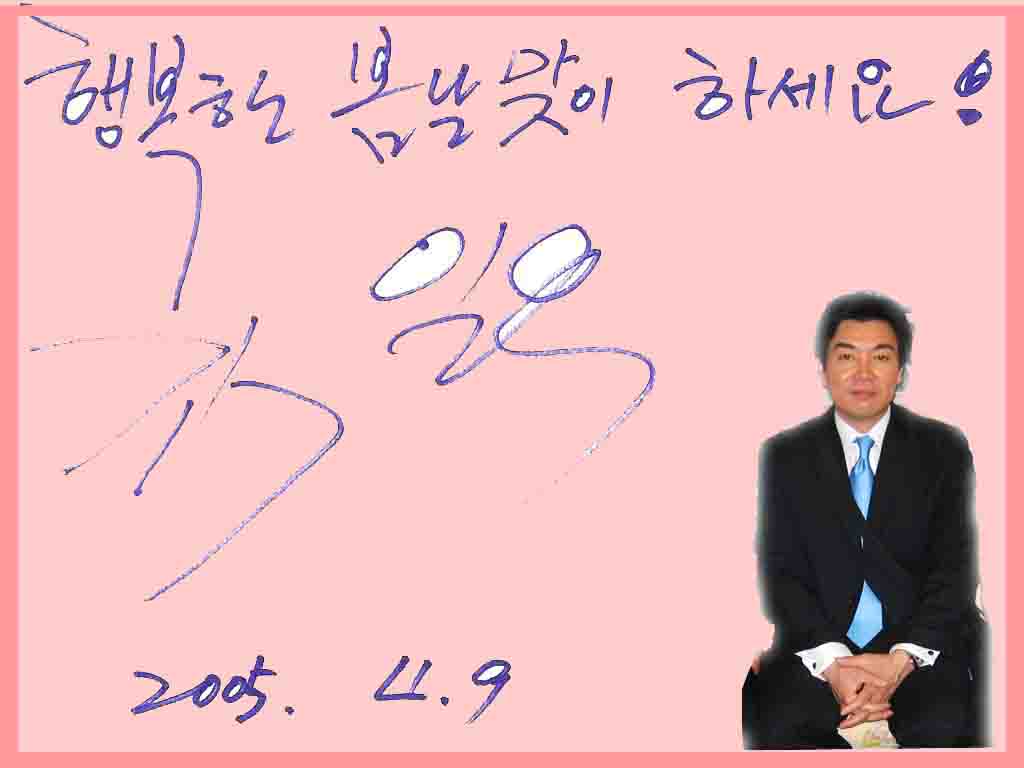 행복한 봄날 맞이 하세요!
2005. 4.9